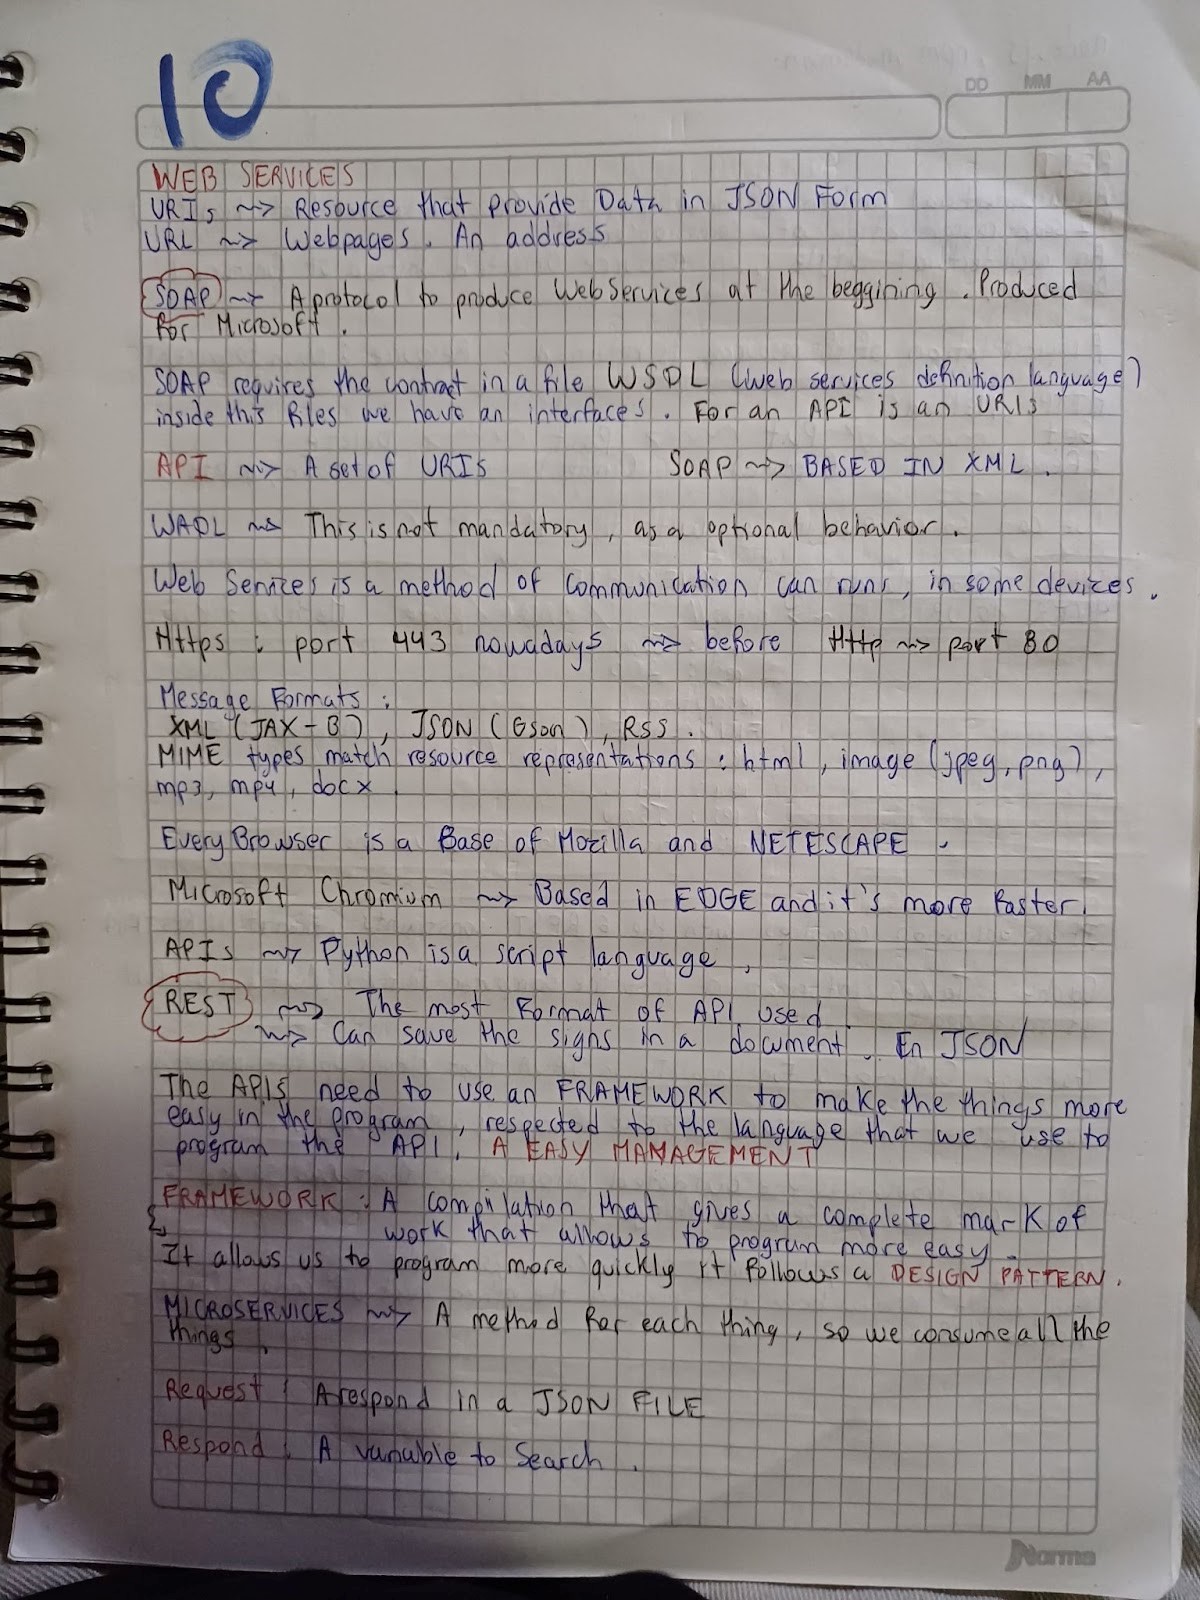 10
DD MM AA
WEB SERVICES
URIs ~> Resource that provide Data in JSON Form
URL ~> Webpages. An address
SOAP ~> A protocol to produce WebServices at the beggining. Produced
for Microsoft.
SOAP requires the contract in a file WSDL (Web services definition language)
inside this files we have an interfaces. For an API is an URIs
API ~> A set of URIs SOAP ~> BASED IN XML.
WADL ~> This is not mandatory, as a optional behavior.
Web Services is a method of communication can runs, in some devices.
Https: port 443 nowadays ~> before Http ~> port 80
Message Formats:
XML (JAX-B), JSON (Gson), RSS.
MIME types match resource representations: html, image (jpeg, png),
mp3, mp4, docx.
Every Browser is a Base of Mozilla and NETESCAPE.
Microsoft Chromium ~> Based in EDGE and it's more faster.
APIs ~> Python is a script language.
REST ~> The most Format of API used.
~> Can save the signs in a document. En JSON
The APIS need to use an FRAMEWORK to make the things more
easy in the program, respected to the language that we use to
program the API. A EASY MANAGEMENT
FRAMEWORK: A compilation that gives a complete mark of
work that allows to program more easy.
It allows us to program more quickly it follows a DESIGN PATTERN.
MICROSERVICES ~> A method for each thing, so we consume all the
things.
Request: A respond in a JSON FILE
Respond: A variable to Search.
Norma